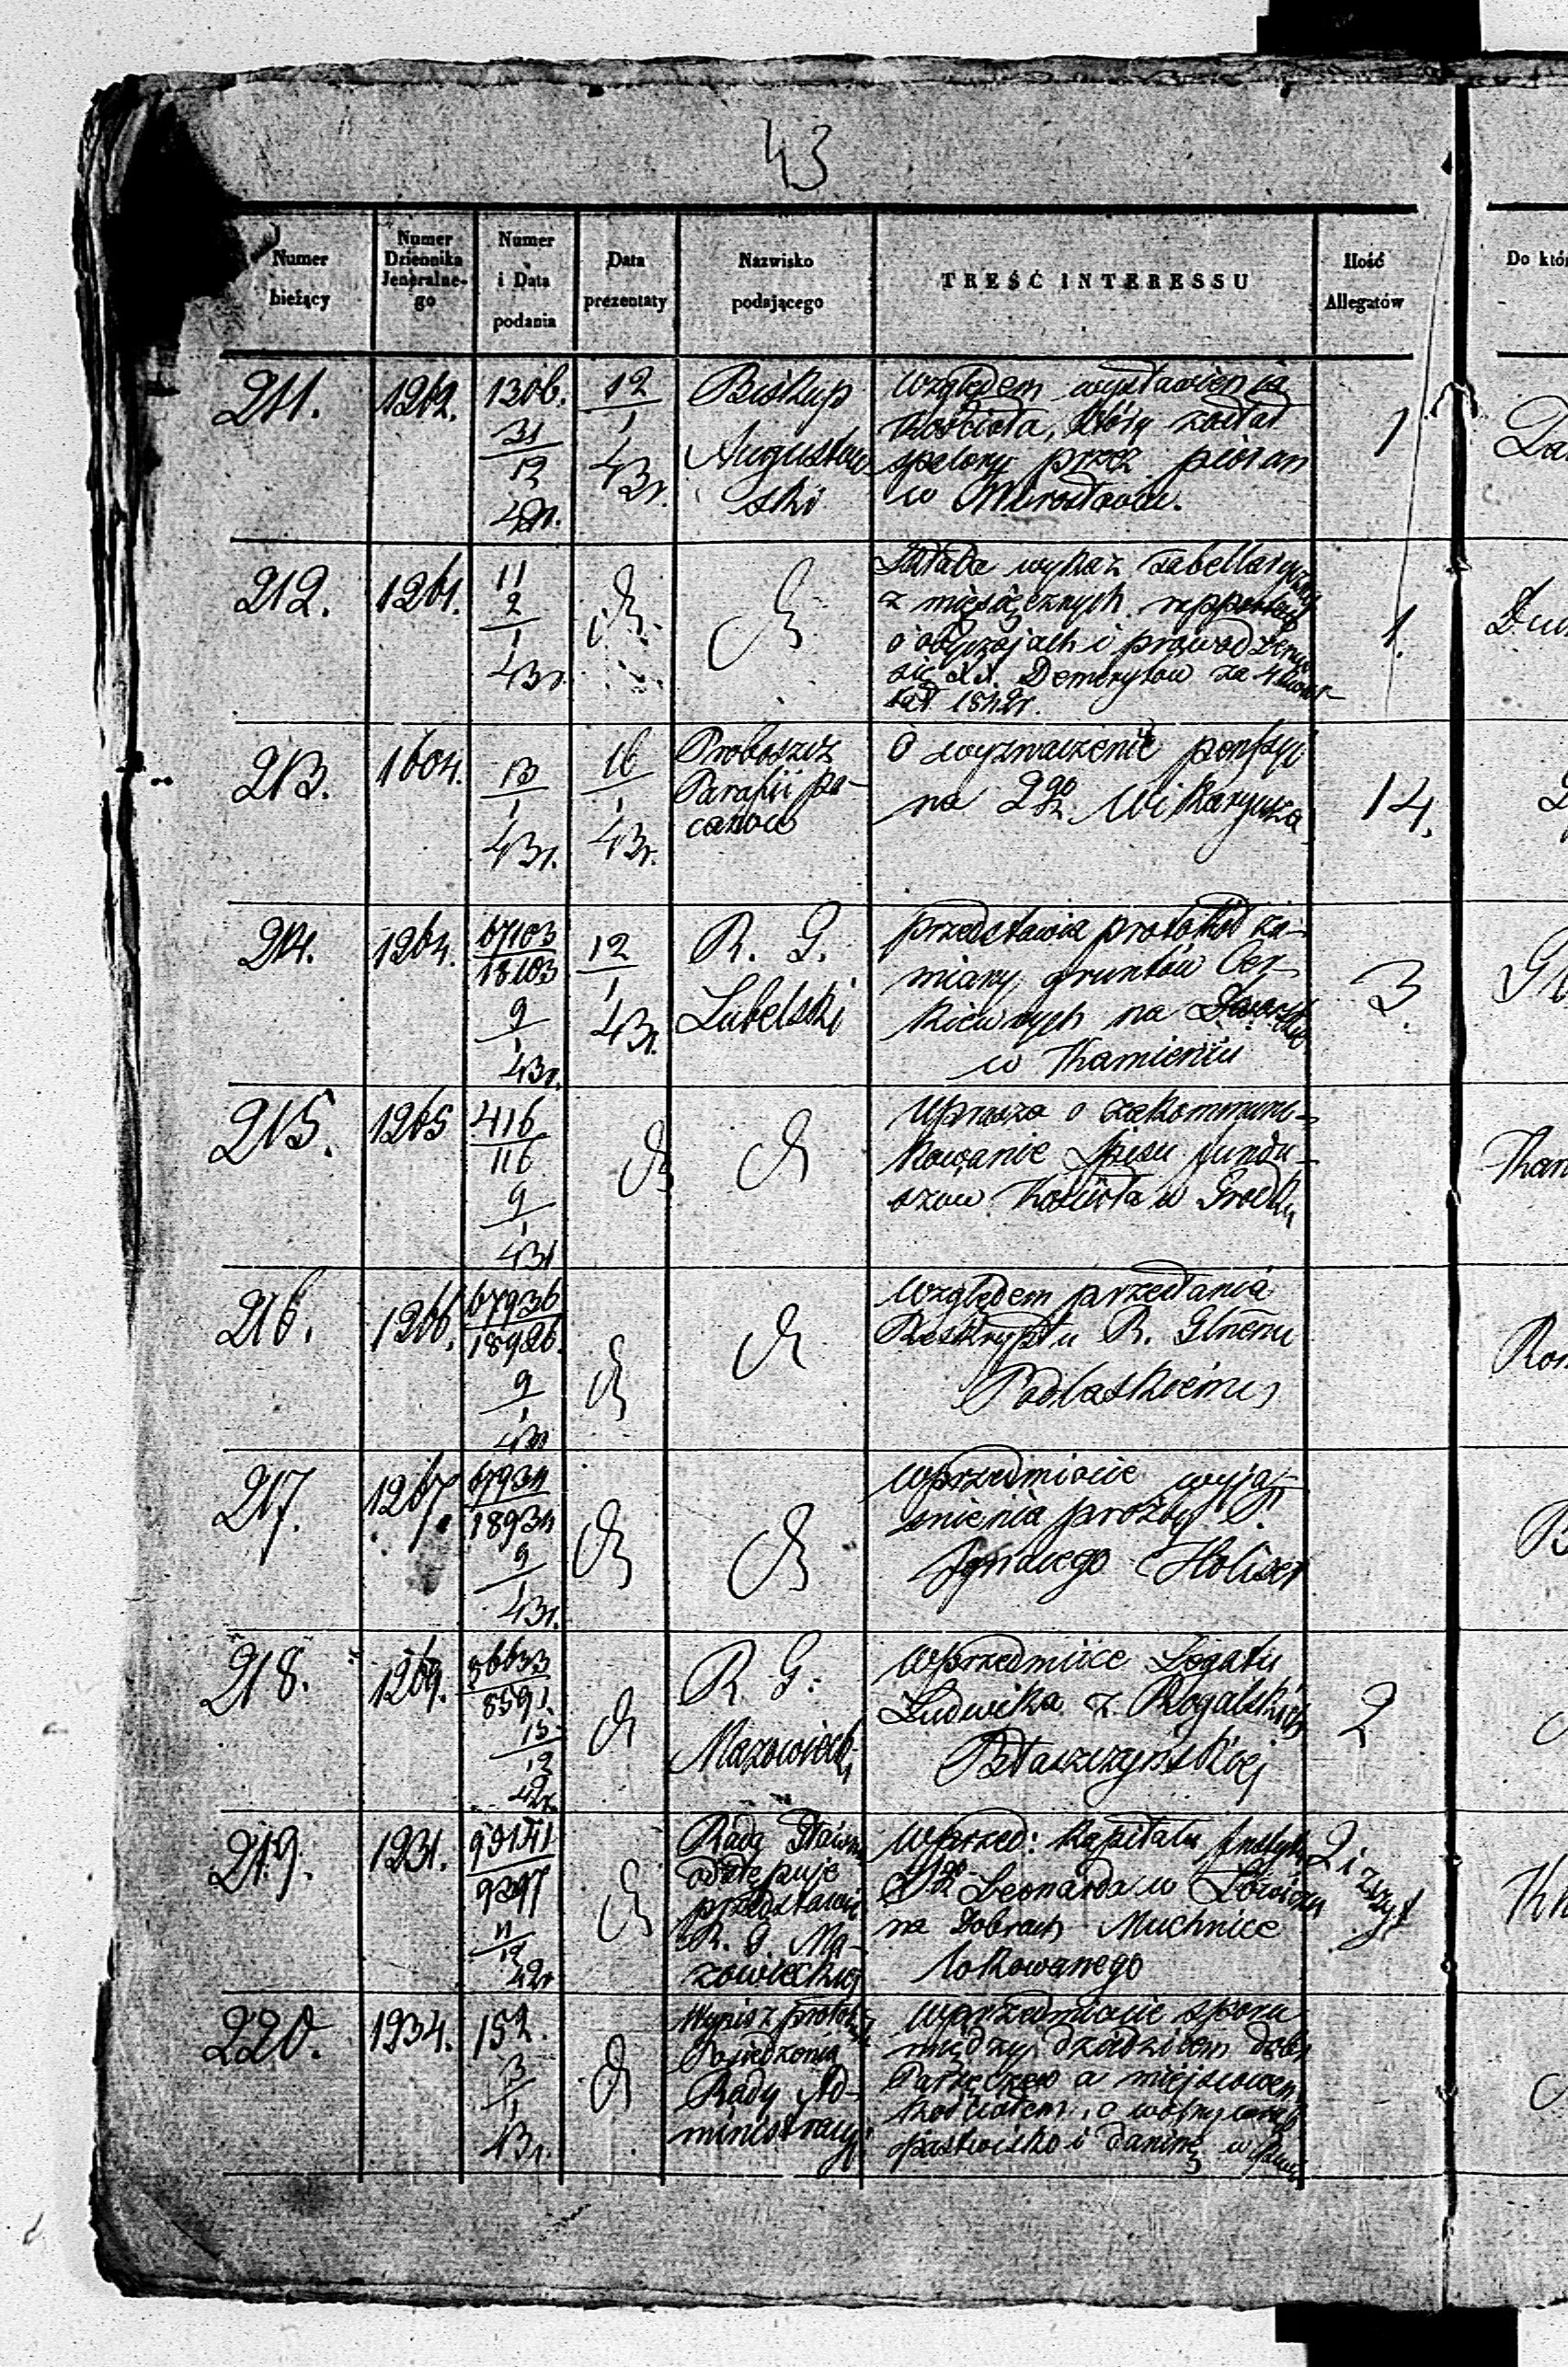 43
Numer bieżący
Numer Dziennika Jeneralne-go
Numer i Data podania
Data prezentaty
Nazwisko podającego
TREŚĆ INTERESSU
Ilość Allegatów
Do któr
211.
1262.
1306.
31
12
42r.
12
1
43r.
Biskup
Augustow
ski
względem wystawienia
Kościoła, który został
spalony przez piorun
w Mirosławiu.
1
212.
1261.
11
2
1
43r.
wykaz tabellaryczny
z miesięcznych rapportów
o obyczajach i prowadzeniu
się XX. Demerytów za 4 kwar-
tał 1842r.
1.
213.
1604.
13
1
43r.
16
1
43r.
Proboszcz
Parafii Pa-
canow
O wyznaczenie pensyi
na 2go Wikaryusza
14.
214.
1264.
67103
18103
9
1
43r.
12
1
43r.
R. G.
Lubelski
przedstawia protokół za-
miany gruntów Cer-
kiewnych na
w Kamieniu
3.
215.
1265
416
116
9
1
43r
Uprasza o zakommuni-
kowanie spisu fundu-
szów Kościoła w Grodku
Kan
216.
1266.
67936
18926.
9
1
43r
względem przesłania
Reskryptu R. Glnemu
Podlaskiemu
Rom
217.
1267.
67934
18934
9
1
43r.
wprzedmiocie wyja-
śnienia prośby
Ignacego
218.
1269.
8591.
15
12
42r.
R. G.
Mazowiecki
wprzedmiocie Legatu
Ludwika z Rogalskich
2
219.
1231.
99141
9297
11
12
42r
Rada
odstępuje
przedstawie
R. G. Ma-
zowieckiej
wprzed: kapitału Instyt
Sgo Leonarda w Łowiczu
na Dobrach Muchnice
lokowanego
2 i zszyt
220.
1234.
152.
3
1
43r.
Wypis z protok
Posiedzenia
Rady Ad-
ministracyj
wprzedmiocie sporu
między dziedzicem dóbr
Parzęczew a miejscowem
kościołem, o wolny wrąb
pastwisko i daninę w